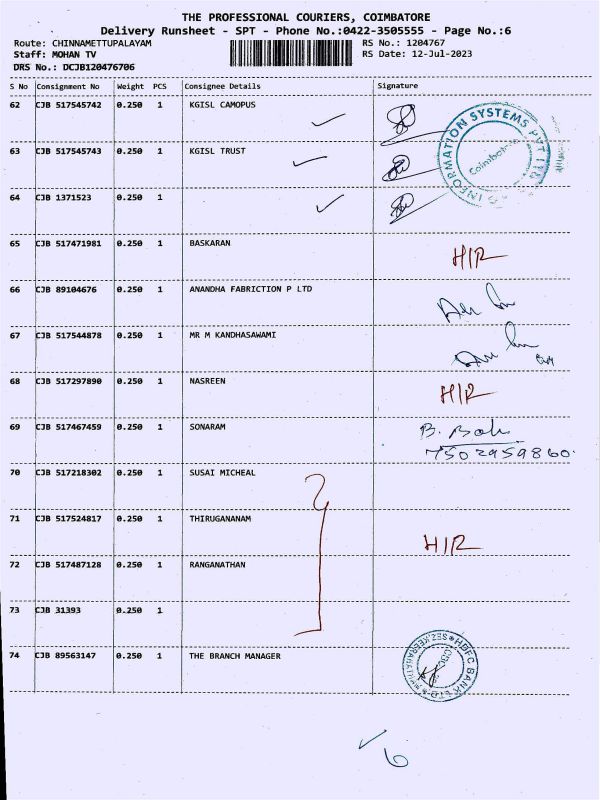 THE PROFESSIONAL COURIERS, COIMBATORE
Delivery Runsheet - SPT - Phone No.:0422-3505555 - Page No.:6
Route: CHINNAMETTUPALAYAM RS No.: 1204767
Staff: MOHAN TV RS Date: 12-Jul-2023
DRS No.: DCJB120476706
S No Consignment No Weight PCS Consignee Details Signature
62 CJB 517545742 0.250 1 KGISL CAMOPUS
INFORMATION SYSTEMS PVT LTD
Coimbatore
63 CJB 517545743 0.250 1 KGISL TRUST
64 CJB 1371523 0.250 1
65 CJB 517471981 0.250 1 BASKARAN H/R
66 CJB 89104676 0.250 1 ANANDHA FABRICTION P LTD
67 CJB 517544878 0.250 1 MR M KANDHASAWAMI
68 CJB 517297890 0.250 1 NASREEN H/R
69 CJB 517467459 0.250 1 SONARAM B.
7502959860.
70 CJB 517218302 0.250 1 SUSAI MICHEAL
71 CJB 517524817 0.250 1 THIRUGANANAM H/R
72 CJB 517487128 0.250 1 RANGANATHAN
73 CJB 31393 0.250 1
74 CJB 89563147 0.250 1 THE BRANCH MANAGER
HDFC BANK LTD
6